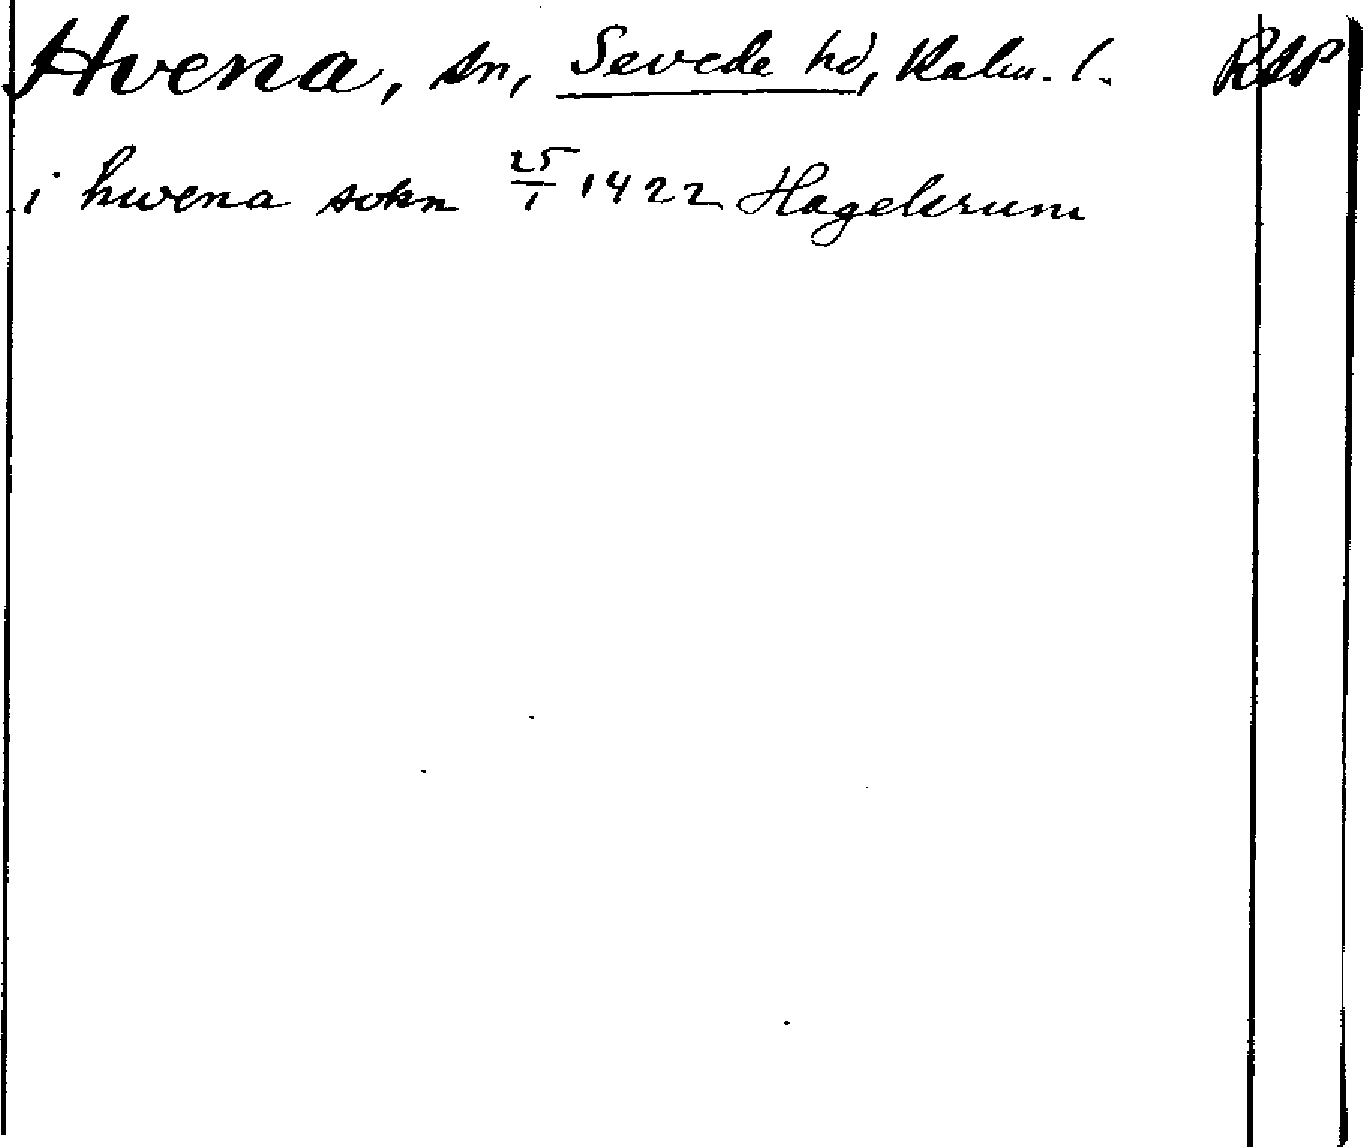 Hvena, sn, Sevede hd, Kalm. l. RAP
i hwena sokn 25/1 1422 Hagelsrum